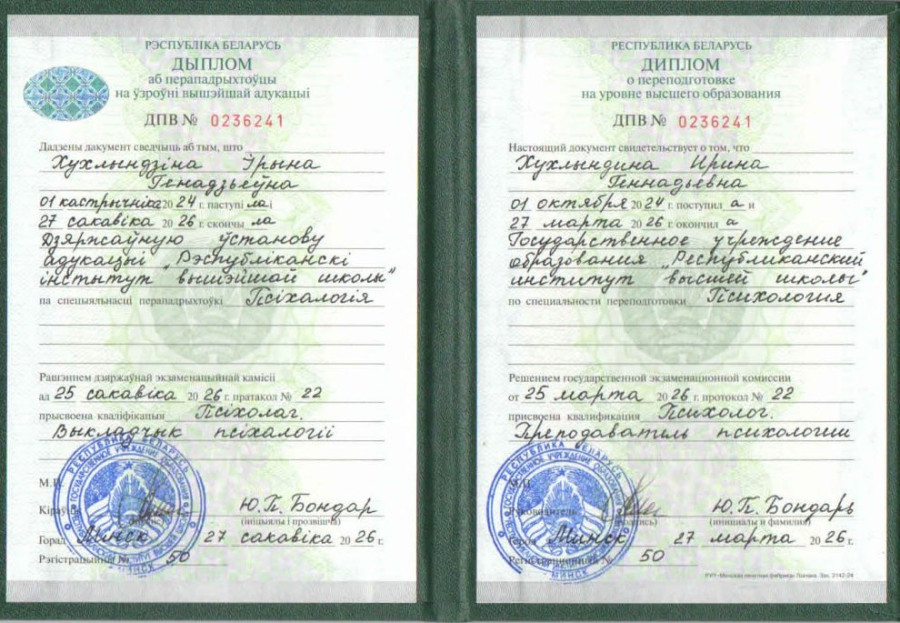 РЭСПУБЛІКА БЕЛАРУСЬ
ДЫПЛОМ
аб перападрыхтоўцы
на ўзроўні вышэйшай адукацыі
ДПВ № 0236241
Дадзены дакумент сведчыць аб тым, што
Хухлындзіна Ірына
Генадзьеўна
01 кастрычніка 2024 г. паступіла і
27 сакавіка 2026 г. скончыла
Дзяржаўную ўстанову
адукацыі „Рэспубліканскі
інстытут вышэйшай школы"
па спецыяльнасці перападрыхтоўкі Псіхалогія
Рашэннем дзяржаўнай экзаменацыйнай камісіі
ад 25 сакавіка 2026 г. пратакол № 22
прысвоена кваліфікацыя Псіхолаг.
Выкладчык псіхалогіі
М.П.
Ю.П. Бондар
(подпіс) (ініцыялы і прозвішча)
Горад Минск 27 сакавіка 2026 г.
Рэгістрацыйны № 50
РЕСПУБЛИКА БЕЛАРУСЬ
ДИПЛОМ
о переподготовке
на уровне высшего образования
ДПВ № 0236241
Настоящий документ свидетельствует о том, что
Хухлындина Ирина
Геннадьевна
01 октября 2024 г. поступила и
27 марта 2026 г. окончила
Государственное учреждение
образования „Республиканский
институт высшей школы"
по специальности переподготовки Психология
Решением государственной экзаменационной комиссии
от 25 марта 2026 г. протокол № 22
присвоена квалификация Психолог.
Преподаватель психологии
М.П.
Руководитель Ю.П. Бондарь
(подпись) (инициалы и фамилия)
Город Минск 27 марта 2026 г.
Регистрационный № 50
РЕСПУБЛИКА БЕЛАРУСЬ
МИНСК